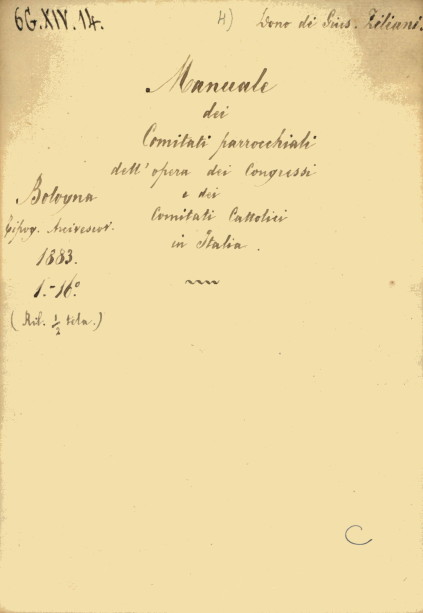 6G.XIV.14.
4) Dono di Gius. Ziliani.
Manuale
dei
Comitati parrocchiali
dell'opera dei Congressi
e dei
Comitati Cattolici
in Italia.
Bologna
Tipog. Arcivescov.
1883.
1.-16.°
(Ril. 1/2 tela.)
C